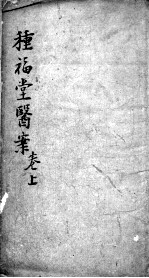 種福堂醫案卷上